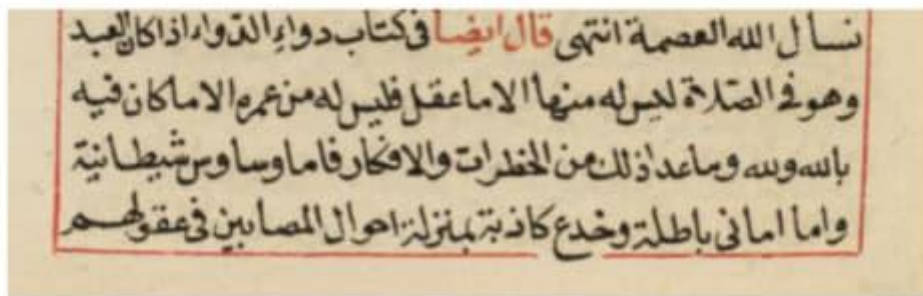 نسأل الله العصمة انتهى قال ايضا فى كتاب دواء الدواء اذا كان العبد
وهو فى الصلاة ليس له منها الا ما عقل فليس له من عمره الا ما كان فيه
بالله ولله وما عدا ذلك من الخطرات والافكار فاما وساوس شيطانية
واما امانى باطلة وخدع كاذبة بمنزلة احوال المصابين فى عقولهم